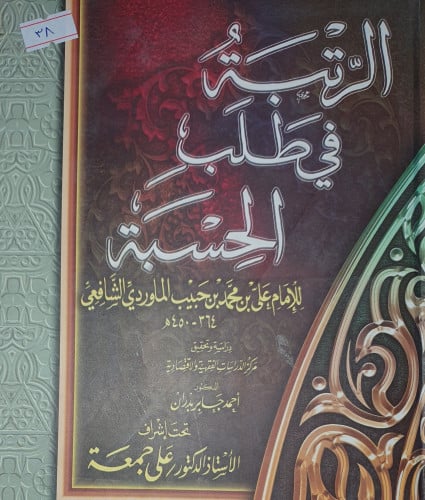 ٣٨
الرتبة
في طلب
الحسبة
للإمام علي بن محمد بن حبيب الماوردي الشافعي
٣٦٤ - ٤٥٠ هـ
دراسة وتحقيق
مركز الدراسات الفقهية والاقتصادية
الدكتور
أحمد جابر بدران
تحت إشراف
الأستاذ الدكتور/ علي جمعة